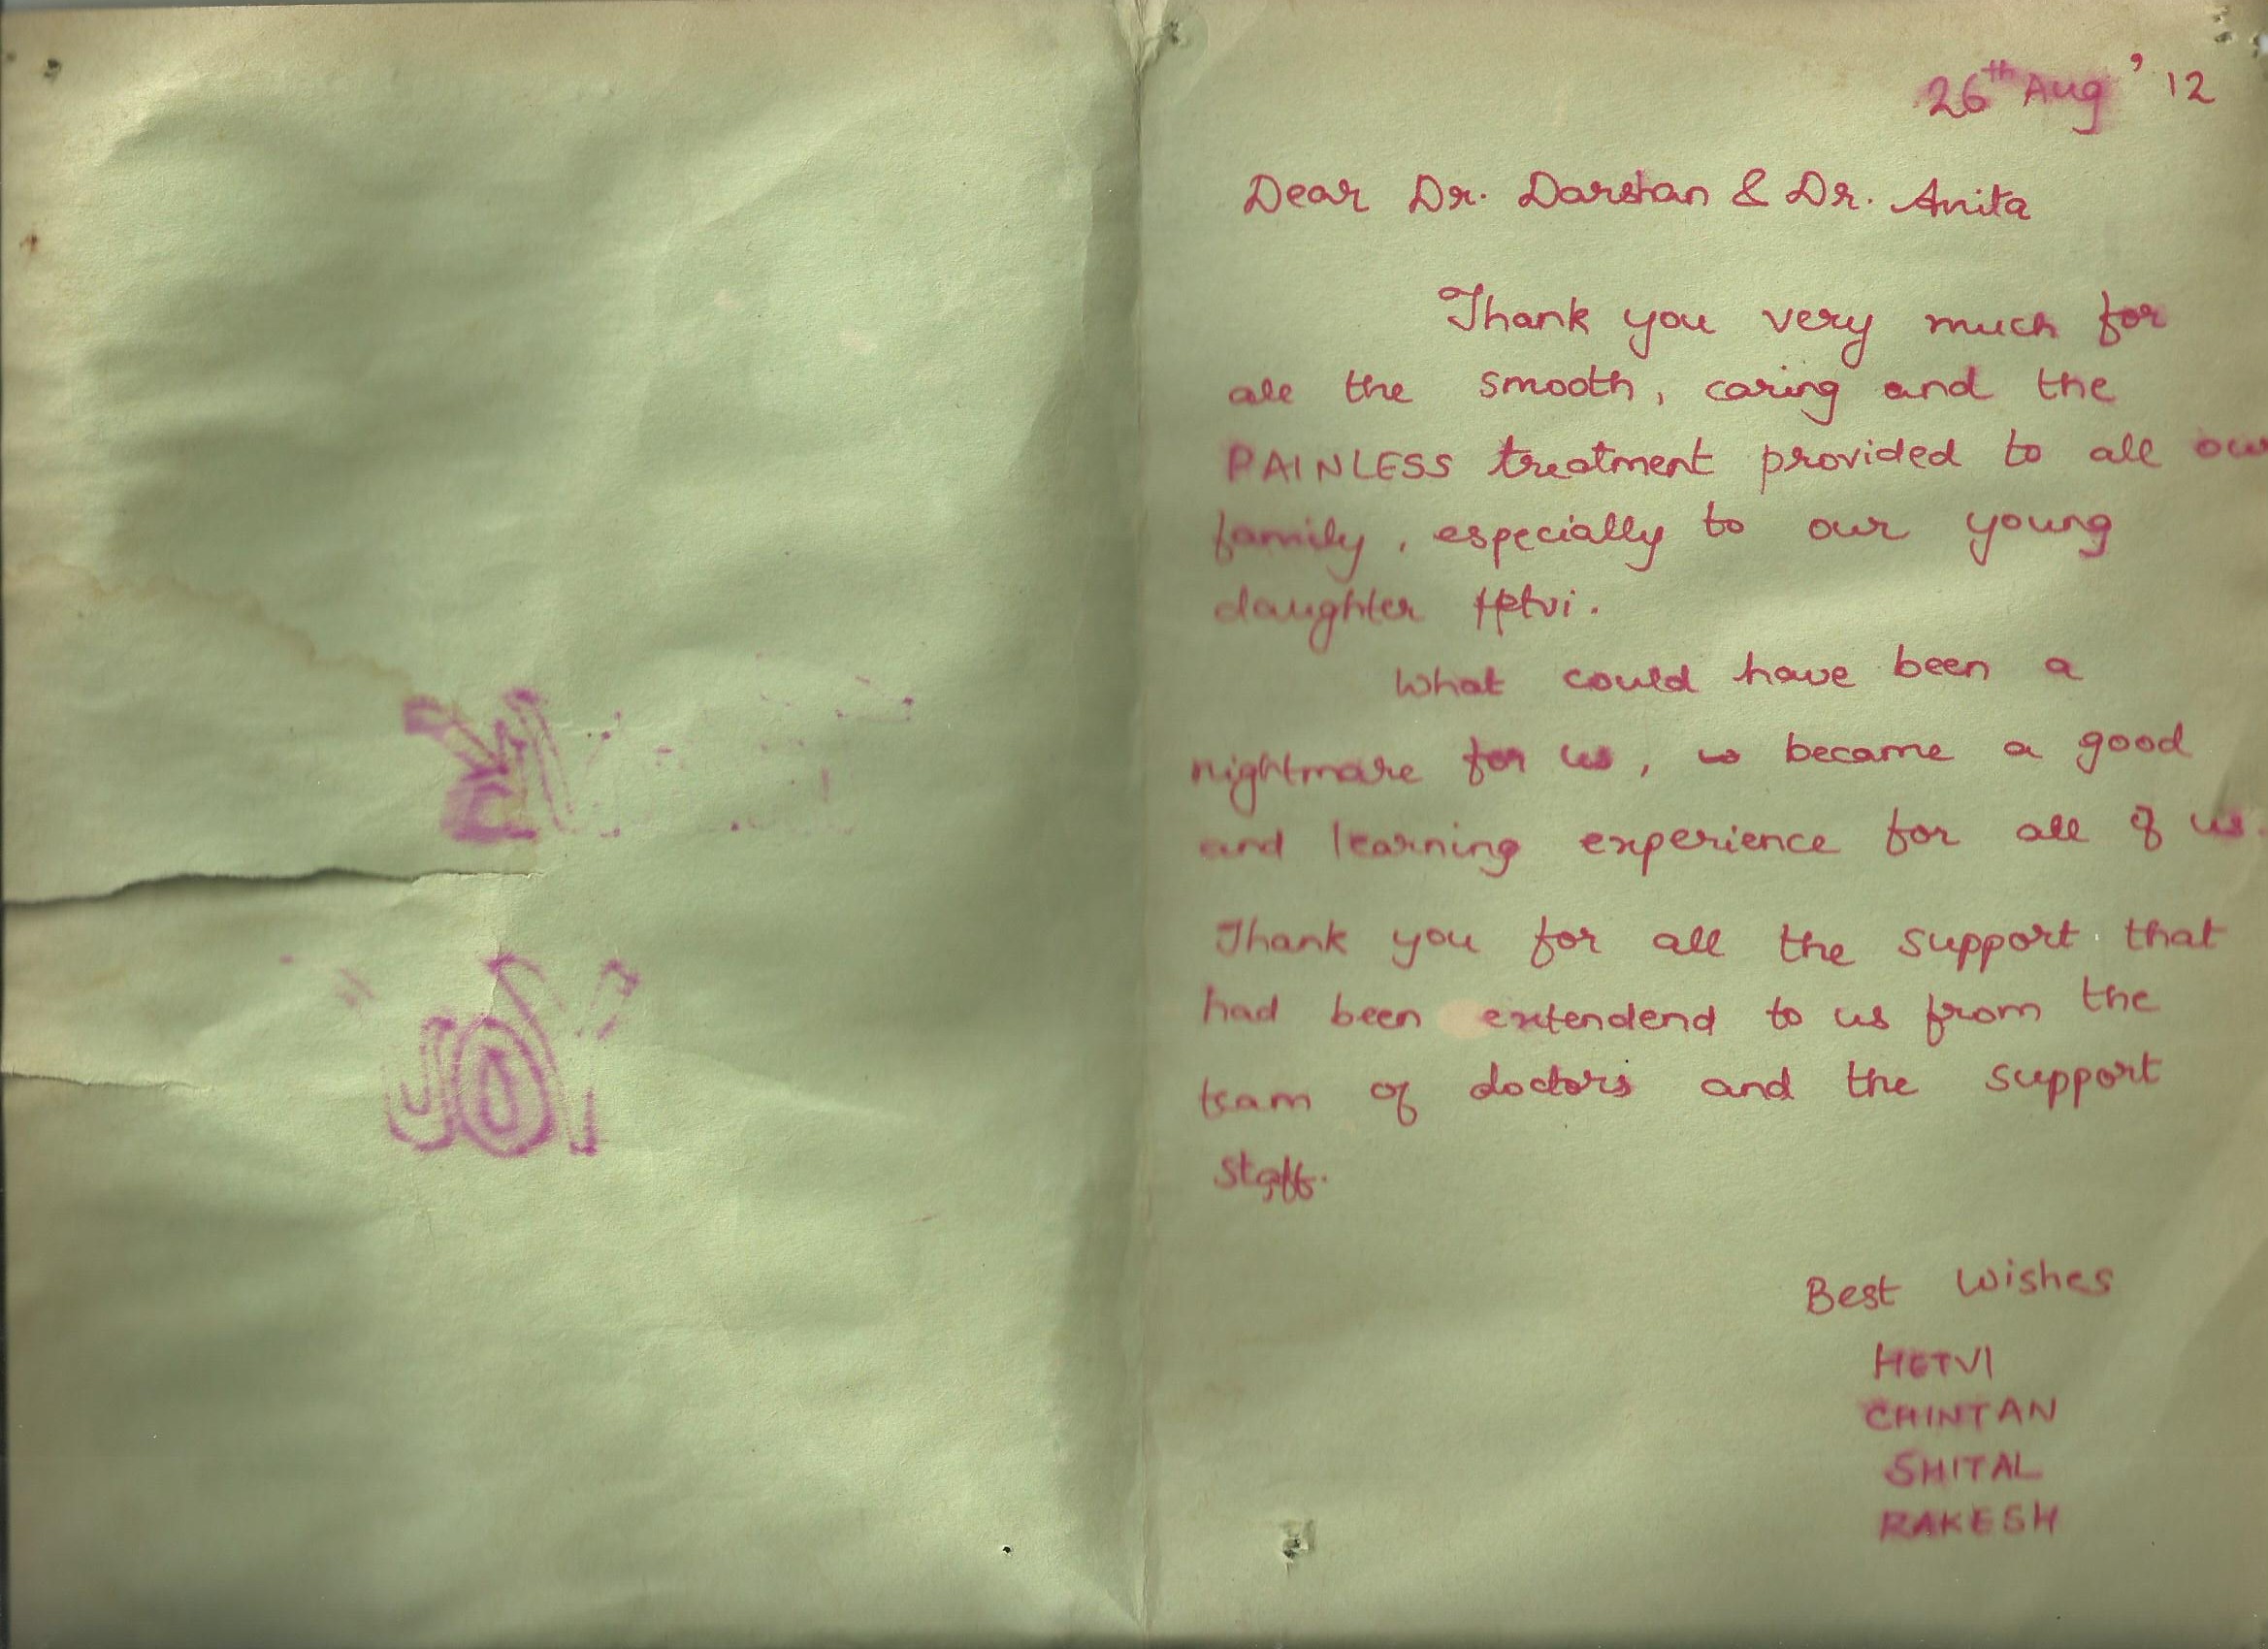 26th Aug '12
Dear Dr. Darshan & Dr. Anita
Thank you very much for
all the smooth, caring and the
PAINLESS treatment provided to all our
family, especially to our young
daughter Hetvi.
What could have been a
nightmare for us, became a good
and learning experience for all of us.
Thank you for all the support that
had been extendend to us from the
team of doctors and the support
staff.
Best Wishes
HETVI
CHINTAN
SHITAL
RAKESH